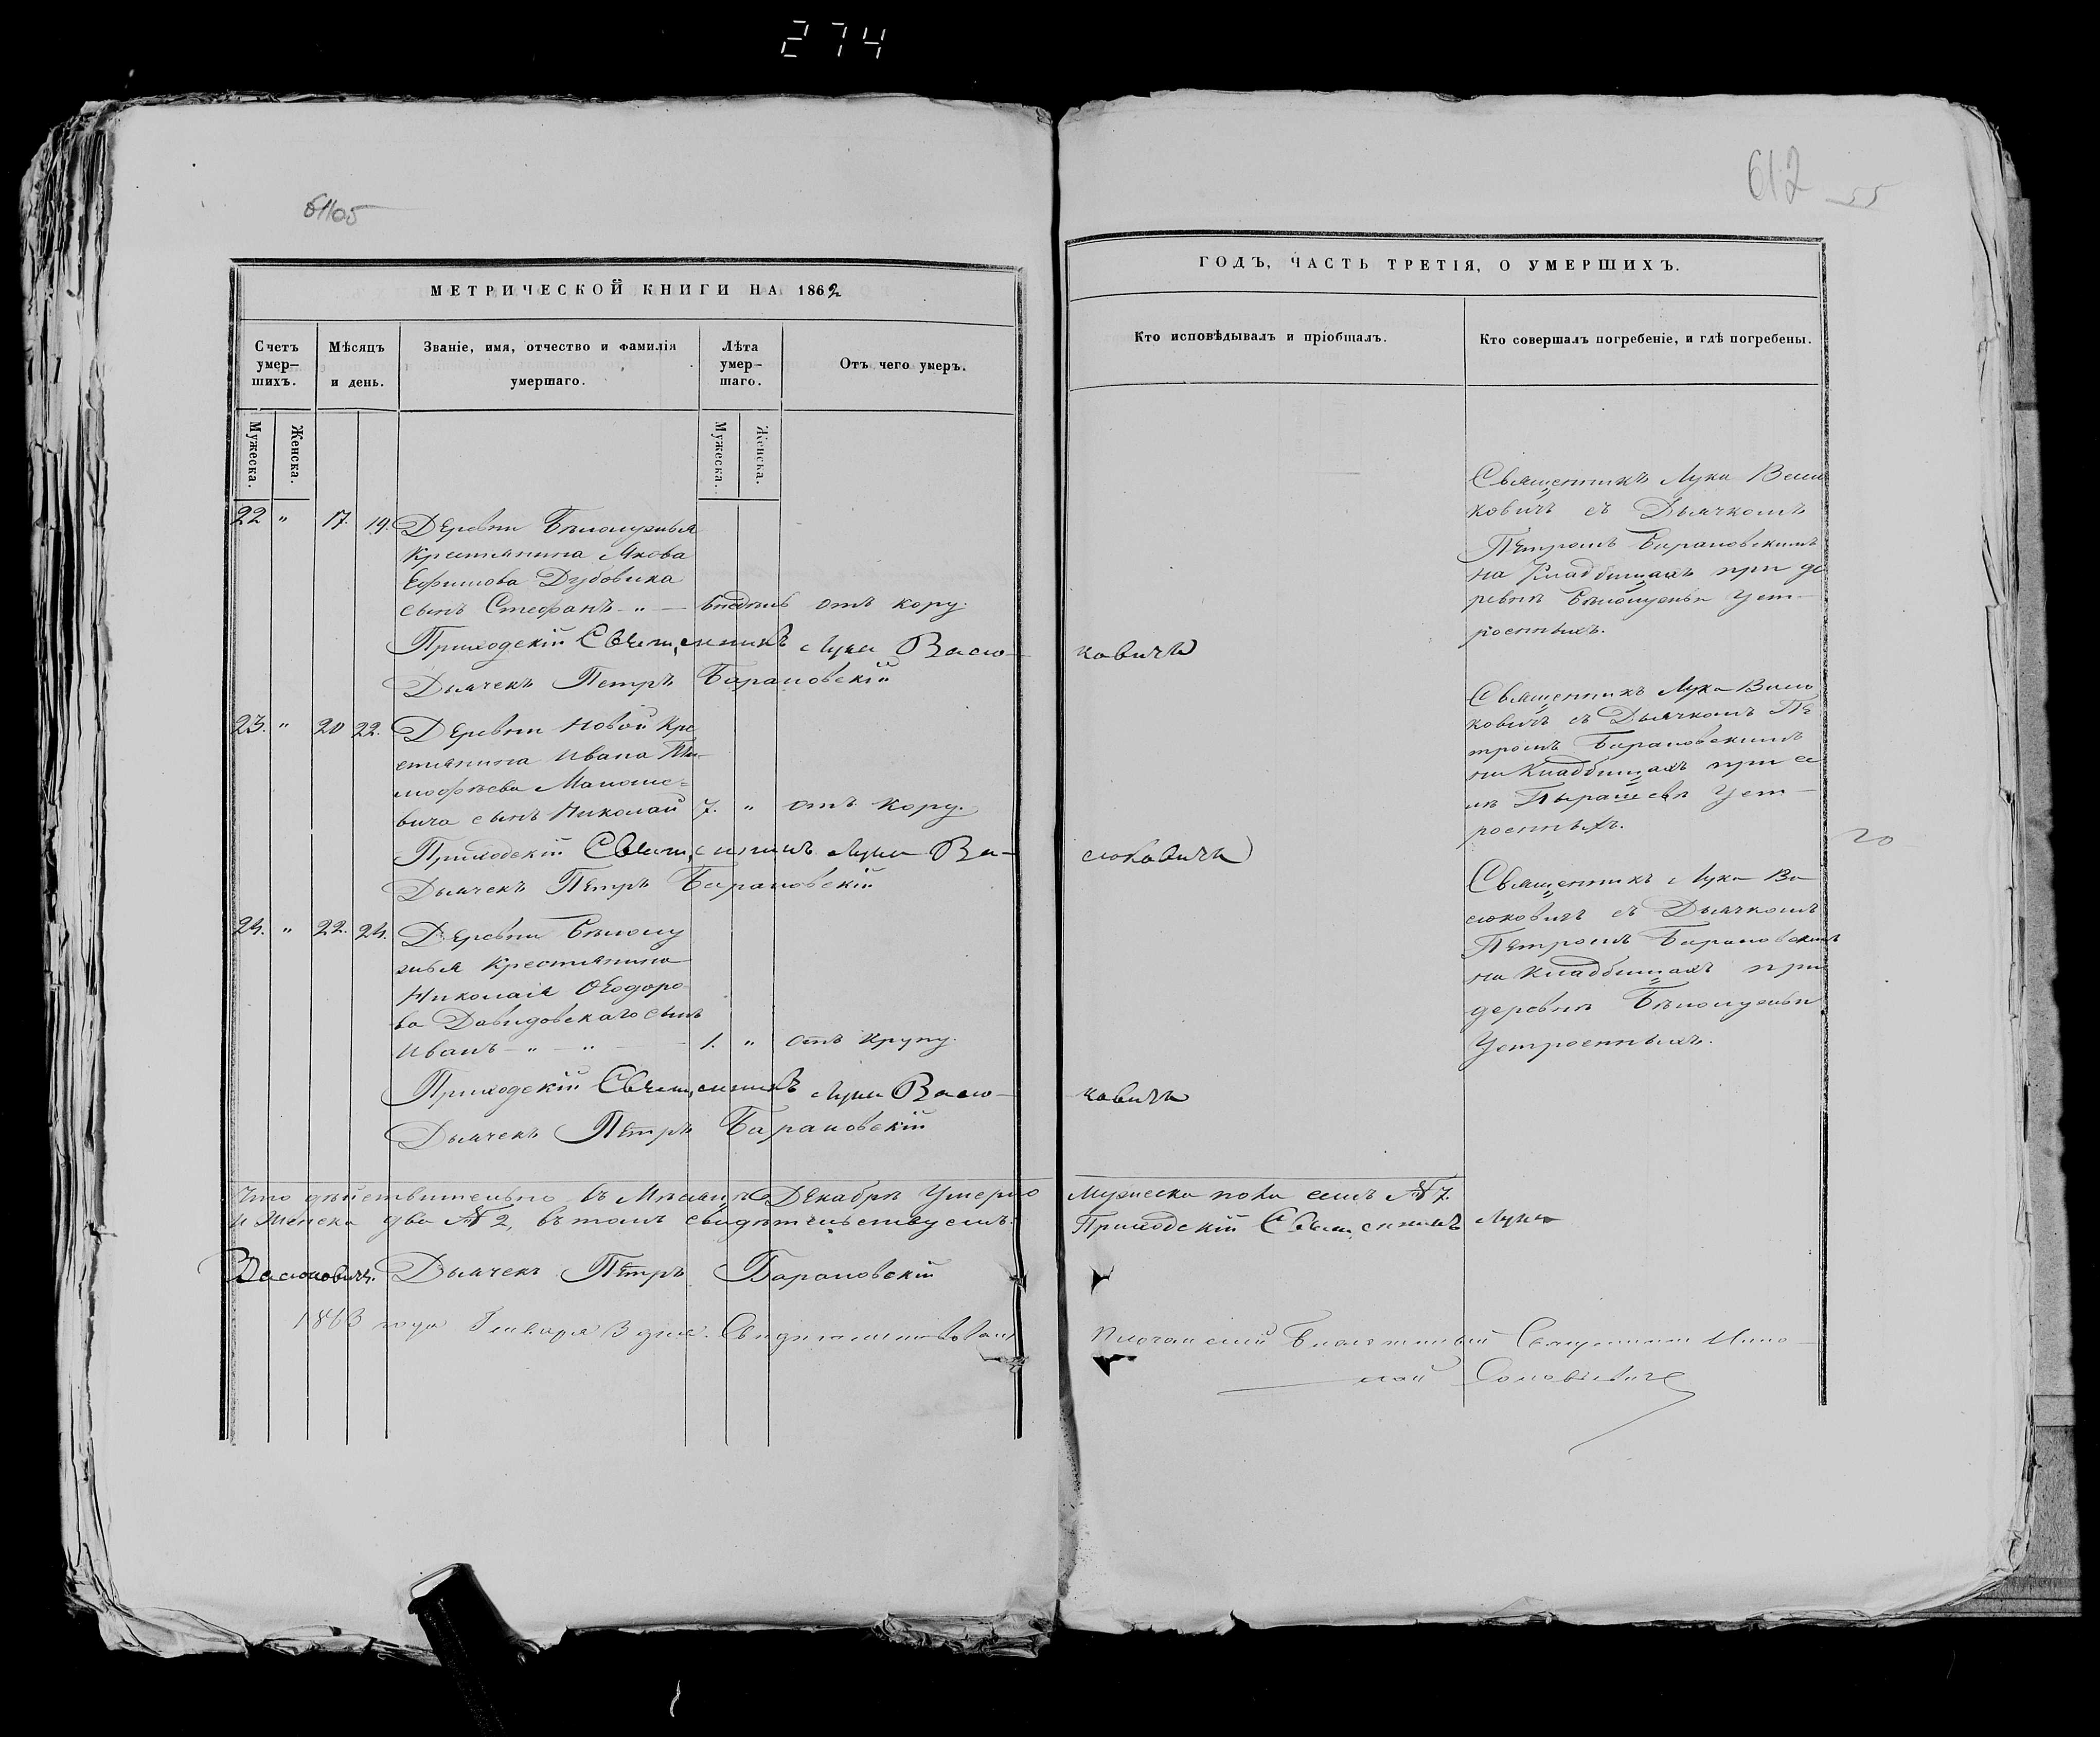 274
612
55
МЕТРИЧЕСКОЙ КНИГИ НА 1862
ГОДЪ, ЧАСТЬ ТРЕТІЯ, О УМЕРШИХЪ.
Счетъ умер-
шихъ.
Мѣсяцъ
и день.
Званіе, имя, отчество и фамилія
умершаго.
Лѣта
умер-
шаго.
Отъ чего умеръ.
Мужеска.
Женска.
Мужеска.
Женска.
Кто исповѣдывалъ и пріобщалъ.
Кто совершалъ погребеніе, и гдѣ погребены.
22 " 17. 19. Деревни
Крестянина Якова
Ефимова Дубовика
сынъ Стефанъ - " - отъ кору.
Приходскій Священникъ Лука Васю-
ковичъ
Дьячекъ Петръ Барановскій
Священникъ Лука Васю
ковичъ съ Дьячкомъ
Петромъ Барановскимъ
на Кладбищахъ при де
ревнѣ Уст-
роенныхъ.
23. " 20 22. Деревни Новой Кре
стянина Ивана Ти-
мофѣева
вича сынъ Николай 7. " отъ кору.
Приходскій Священникъ Лука Ва-
сюковичъ
Дьячекъ Петръ Барановскій
Священникъ Лука Васю
ковичъ съ Дьячкомъ Пе
тромъ Барановскимъ
на Кладбищахъ при се
лѣ Уст-
роенныхъ.
20
24. " 22. 24. Деревни
Крестянина
Николая Ѳеодоро
ва Давидовскаго сынъ
Иванъ - " - " - 1. " отъ Крупу.
Приходскій Священникъ Лука Васю-
ковичъ
Дьячекъ Петръ Барановскій
Священникъ Лука Ва
сюковичъ съ Дьячкомъ
Петромъ Барановскимъ
на Кладбищахъ при
деревнѣ
Устроенныхъ.
Что дѣйствительно въ Мѣсяцѣ Декабрѣ Умерло
Мужеска пола семь № 7.
И Женска два № 2, въ томъ свидѣтельствуемъ.
Приходскій Священникъ Лука
Васюковичъ. Дьячекъ Петръ Барановскій
1863 года Января 3 дня.
Священникъ